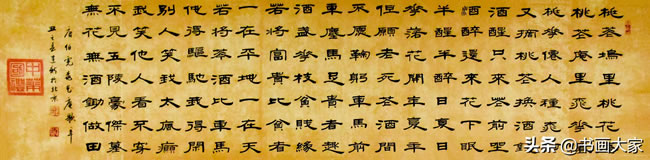 桃花塢里桃花庵
桃花庵里桃花仙
桃花僊人種桃樹
又摘桃花換酒錢
酒醒只在花前坐
酒醉還來花下眠
半醒半醉日復日
花落花開年復年
但願老死花酒間
不願鞠躬車馬前
車塵馬足貴者趣
酒盞花枝貧者緣
若將富貴比貧者
一在平地一在天
若將花酒比車馬
他得驅馳我得閑
別人笑我太瘋癲
我笑他人看不穿
不見五陵豪傑墓
無花無酒鋤做田
唐伯虎桃花庵歌辛
丑之春 於北京
头条@书画大家